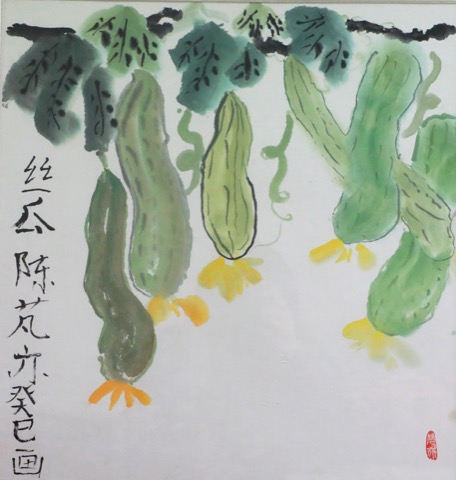 丝瓜陈芃亦癸巳画